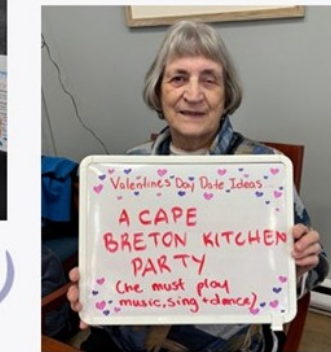 Valentines Day Date Ideas...
A CAPE
BRETON KITCHEN
PARTY
(he must play
music, sing + dance)